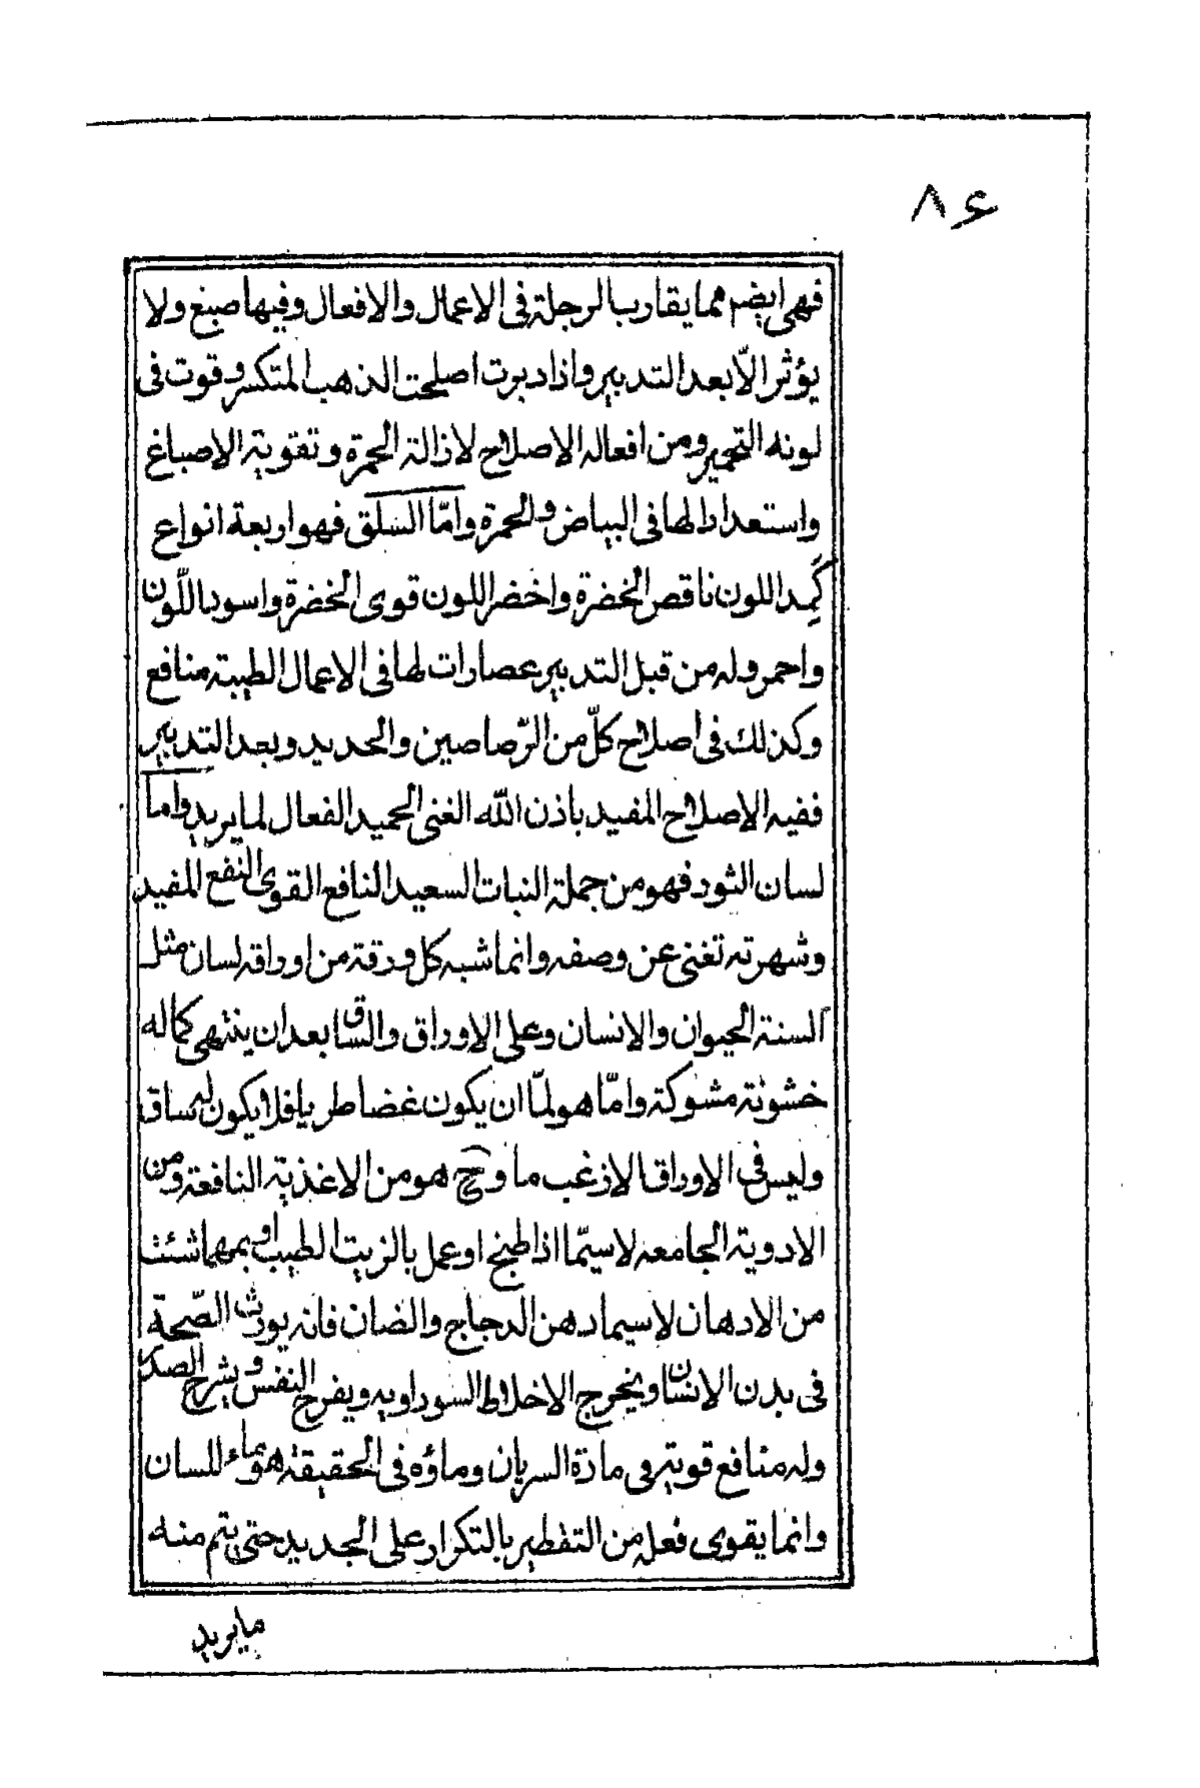 ٨٤
فهى ايضم مما يقارب الرجلة فى الاعمال والافعال وفيها صبغ ولا
يؤثر الّا بعد التدبير واذا دبرت اصلحت الذهب المتكسر وقوت فى
لونه التحمير ومن افعاله الاصلاح لازالة الحمرة وتقوية الاصباغ
واستعدادالها فى البياض والحمرة وامّا السلق فهو اربعة انواع
كمِد اللون ناقص الخضرة واخضر اللون قوى الخضرة واسود اللّون
واحمر وله من قبل التدبير عصارات لها فى الاعمال الطيبة منافع
وكذلك فى اصلاح كلّ من الرّصاصين والحديد وبعد التدبير
ففيه الاصلاح المفيد باذن اللّه الغنى الحميد الفعال لما يريد واما
لسان الثور فهو من جملة النبات السعيد النافع القوى النفع المفيد
وشهرته تغنى عن وصفه وانما شبه كل ورقة من اوراقه لسان مثل
السنة الحيوان والانسان وعلى الاوراق والساق بعد ان ينتهى كماله
خشونة مشوكة وامّا هو لمّا ان يكون غضا طريا فلا يكون له ساق
وليس فى الاوراق الا زغب ما وح هو من الاغذية النافعة ومن
الادوية الجامعه لاسيّما اذا طبخ او عمل بالزيت الطيب او بمهما شئت
من الادهان لاسيما دهن الدجاج والضان فانه يورث الصّحة
فى بدن الانسان ويخرج الاخلاط السوداويه ويفرح النفس ويشرح الصدر
وله منافع قوية فى مادة السريان وماؤه فى الحقيقة هو ماء للسان
وانما يقوى فعله من التقطير بالتكرار على الجديد حتى يتم منه
مايريد